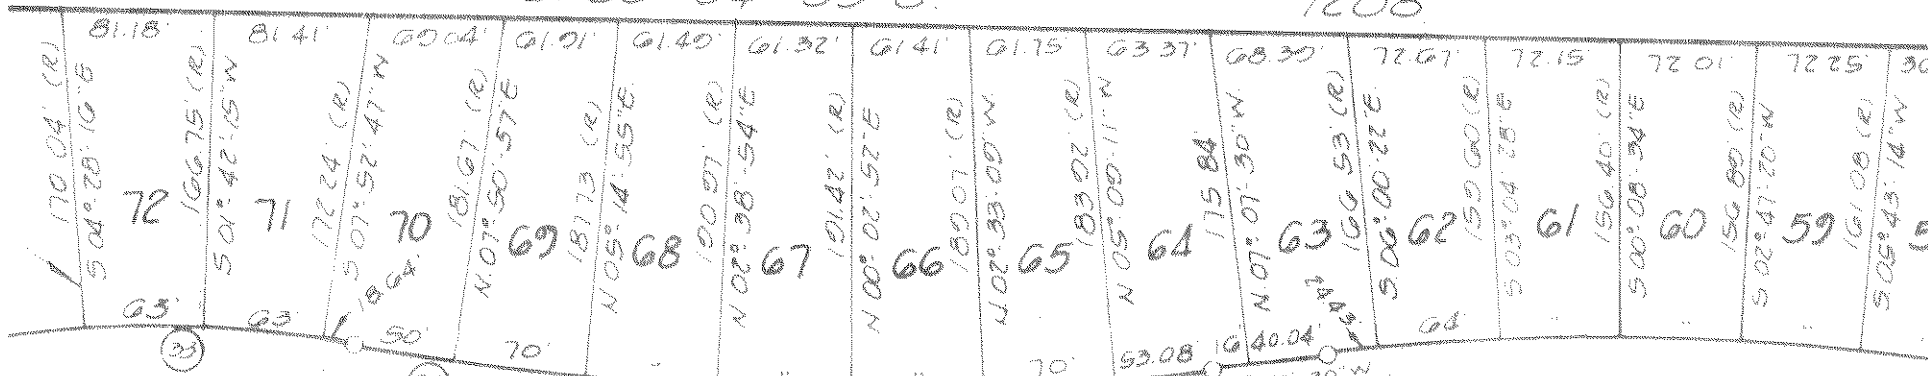 1208
81.18'
81.41'
61.91'
61.49'
61.32'
61.41'
61.75'
63.37'
68.39'
72.67'
72.15'
72.01'
72.25'
170.04' (R)
S 04°-28'-16" E
72
166.75' (R)
S 01°-42'-15" W
71
172.24' (R)
S 07°-52'-47" W
70
181.67' (R)
N. 07°-50'-57" E
69
187.73' (R)
N 05°-14'-55" E
68
190.97' (R)
N 02°-38'-54" E
67
191.42' (R)
N 00°-02'-52" E
66
189.07' (R)
N. 02°-33'-09" W.
65
183.92' (R)
N 05°-09'-11" W
64
175.84'
N. 07°-07'-30" W.
63
166.53' (R)
S. 06°-00'-22" E.
62
159.60' (R)
S 03°-04'-28" E
61
156.40' (R)
S 00°-08'-34" E
60
156.89' (R)
S 02°-47'-20" W
59
161.08' (R)
S 05°-43'-14" W
63'
63'
18.64'
50'
70'
"
"
"
70'
53.08'
16'
40.04'
64'
"
"
"
33